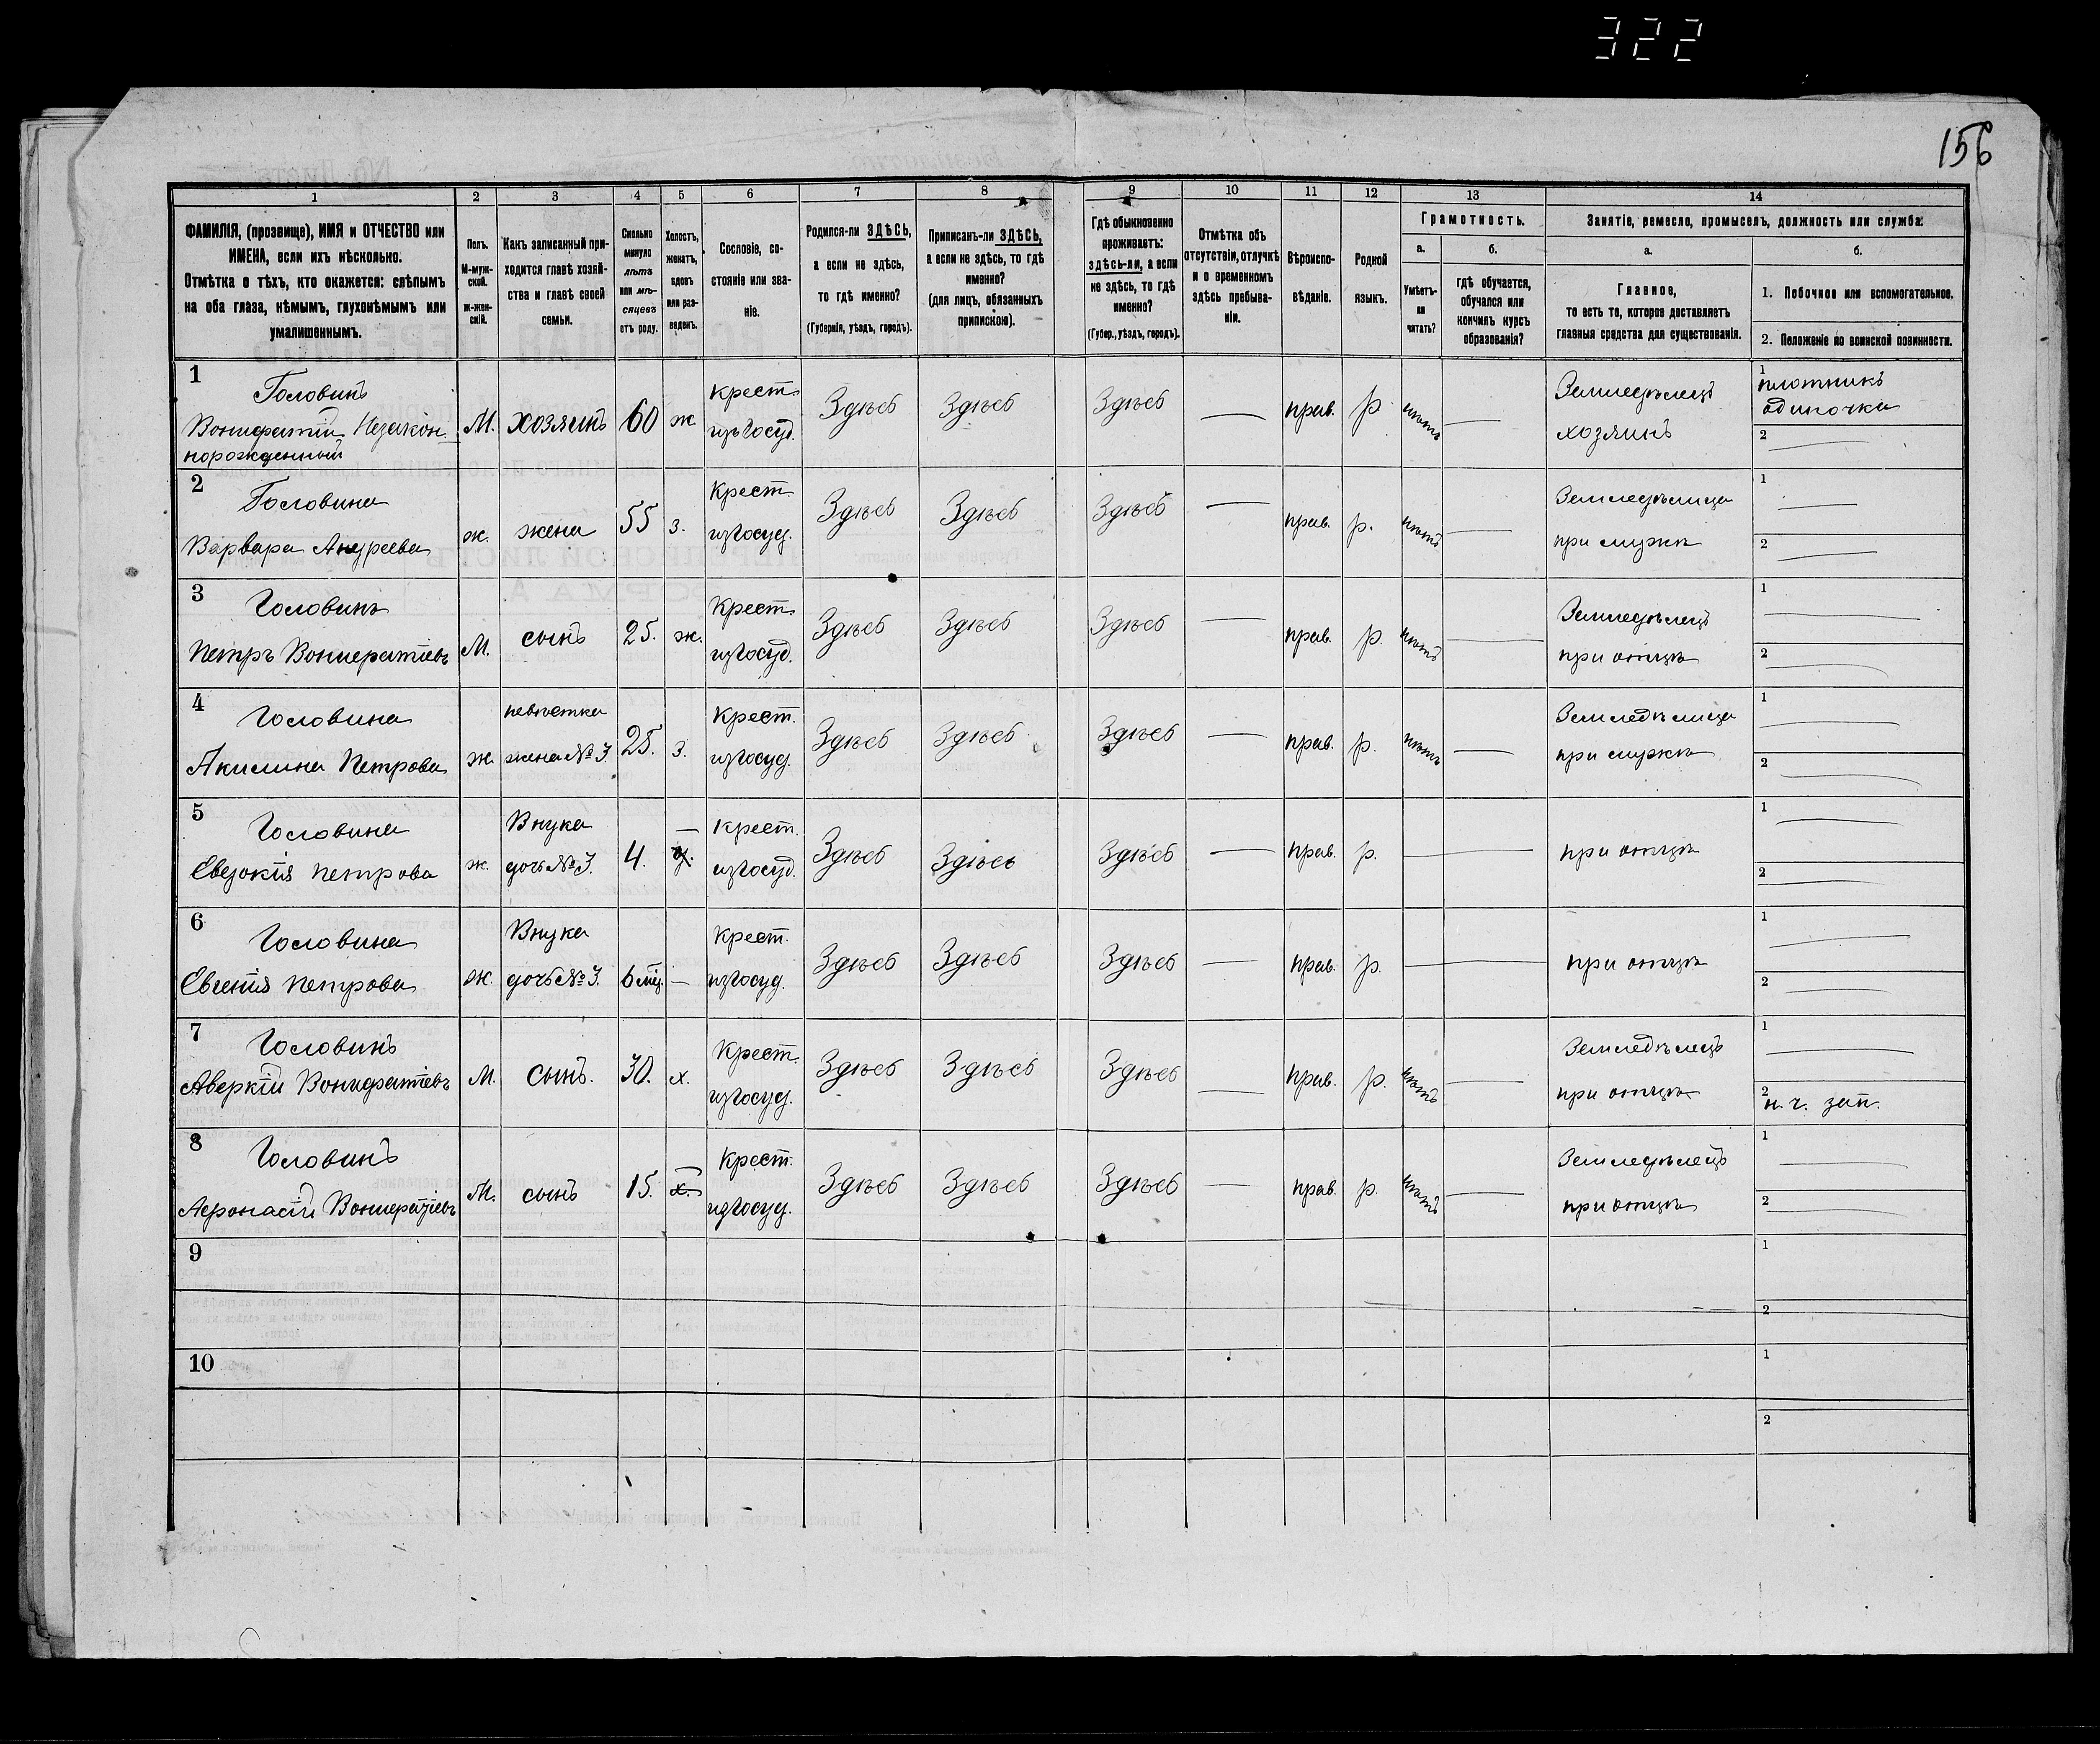 322
156
1
2
3
4
5
6
7
8
9
10
11
12
13
14
ФАМИЛІЯ, (прозвище), ИМЯ и ОТЧЕСТВО или
ИМЕНА, если ихъ нѣсколько.
Отмѣтка о тѣхъ, кто окажется: слѣпымъ
на оба глаза, нѣмымъ, глухонѣмымъ или
умалишеннымъ.
Полъ.
М-муж-
ской.
ж-жен-
скій.
Какъ записанный при-
ходится главѣ хозяй-
ства и главѣ своей
семьи.
Сколько
минуло
лѣтъ
или мѣ-
сяцевъ
отъ роду.
Холостъ,
женатъ,
вдовъ
или раз-
веденъ.
Сословіе, со-
стояніе или зва-
ніе.
Родился-ли ЗДѢСЬ,
а если не здѣсь,
то гдѣ именно?
(Губернія, уѣздъ, городъ).
Приписанъ-ли ЗДѢСЬ,
а если не здѣсь, то гдѣ
именно?
(для лицъ, обязанныхъ
припискою).
Гдѣ обыкновенно
проживаетъ:
здѣсь-ли, а если
не здѣсь, то гдѣ
именно?
(Губер., уѣздъ, городъ).
Отмѣтка объ
отсутствіи, отлучкѣ
и о временномъ
здѣсь пребыва-
ніи.
Вѣроиспо-
вѣданіе.
Родной
языкъ.
Грамотность.
а.
Умѣетъ-
ли
читать?
б.
гдѣ обучается,
обучался или
кончилъ курсъ
образованія?
Занятіе, ремесло, промыселъ, должность или служба:
а.
Главное,
то есть то, которое доставляетъ
главныя средства для существованія.
б.
1. Побочное или вспомогательное.
2. Положеніе по воинской повинности.
1
Головинъ
Вонифатій Незакон.
норожденный
М. хозяинъ 60 ж.
крест.
изъ госуд.
Здѣсь Здѣсь Здѣсь — прав. р. нѣтъ —
Земледѣлецъ
хозяинъ
1 плотникъ
одиночка
2 —
2
Головина
Варвара Андреева
ж. жена 55 з.
Крест.
изъ госуд.
Здѣсь Здѣсь Здѣсь — прав. р. нѣтъ —
Земледѣлица
при мужѣ
1 —
2 —
3
Головинъ
Петръ Вонифатіевъ
М. сынъ 25. ж.
Крест.
изъ госуд.
Здѣсь Здѣсь Здѣсь — прав. р. нѣтъ —
Земледѣлецъ
при отцѣ
1 —
2 —
4
Головина
Акилина Петрова
ж.
невѣстка
жена № 3.
25. з.
Крест.
изъ госуд.
Здѣсь Здѣсь Здѣсь — прав. р. нѣтъ —
Земледѣлица
при мужѣ
1 —
2 —
5
Головина
Евдокія Петрова
ж.
Внука
дочь № 3.
4. —
Крест.
изъ госуд.
Здѣсь Здѣсь Здѣсь — прав. р. —
при отцѣ
1 —
2 —
6
Головина
Евгенія Петрова
ж.
Внука
дочь № 3.
6 мѣс. —
Крест.
изъ госуд.
Здѣсь Здѣсь Здѣсь — прав. р. —
при отцѣ
1 —
2 —
7
Головинъ
Аверкій Вонифатіевъ
М. сынъ. 30. х.
Крест.
изъ госуд.
Здѣсь Здѣсь Здѣсь — прав. р. нѣтъ —
Земледѣлецъ
при отцѣ
1 —
2 н. ч. зап.
8
Головинъ
Афонасій Вонифатіевъ
М. сынъ 15. х.
Крест.
изъ госуд.
Здѣсь Здѣсь Здѣсь — прав. р. нѣтъ —
Земледѣлецъ
при отцѣ
1 —
2 —
9
1
2
10
1
2